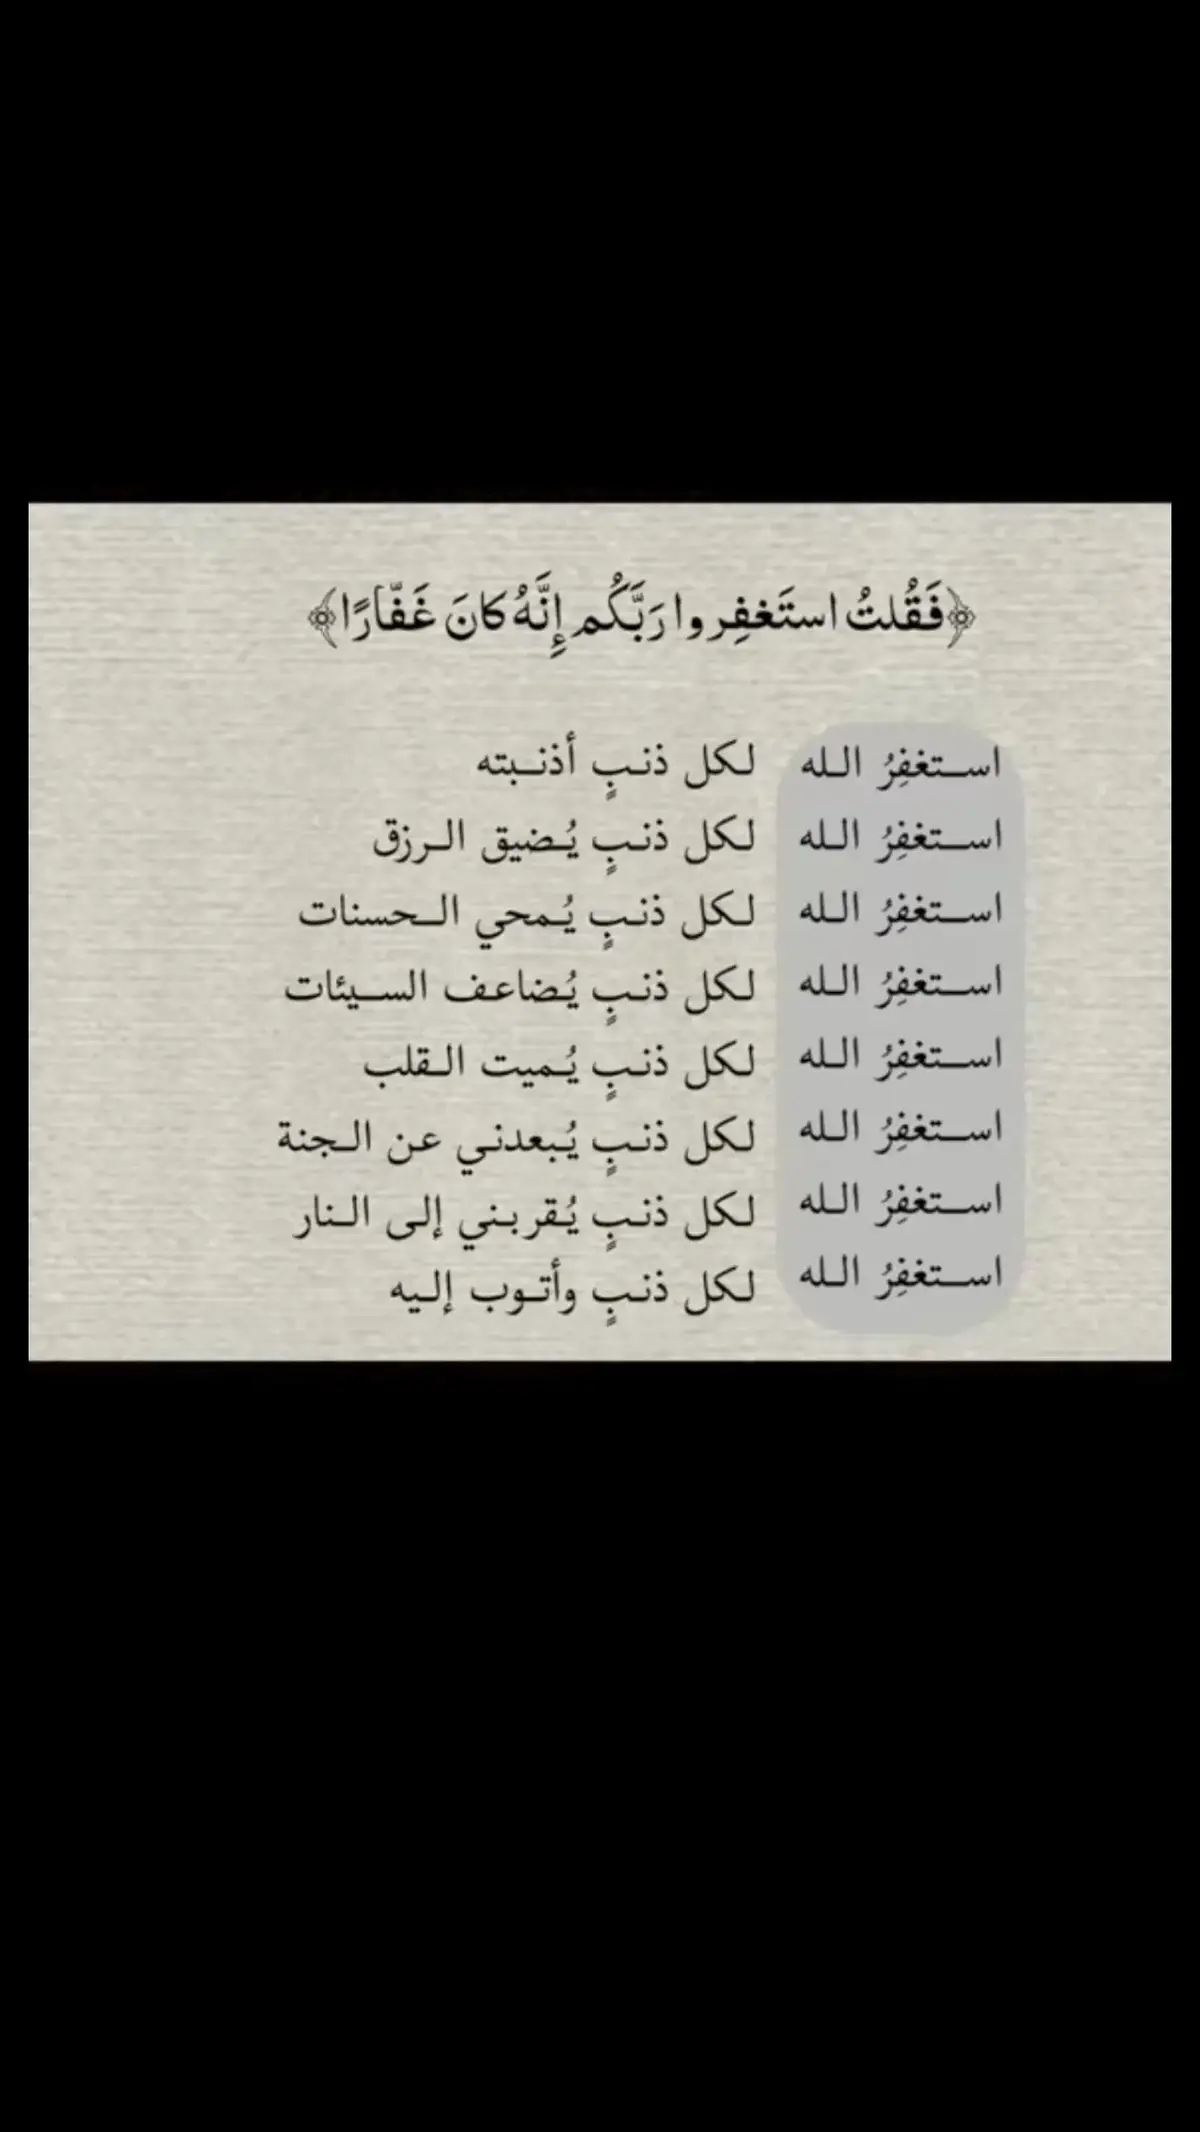 ﴿فَقُلتُ استَغفِروا رَبَّكُم إِنَّهُ كانَ غَفّارًا﴾
استغفِرُ الله لكل ذنبٍ أذنبته
استغفِرُ الله لكل ذنبٍ يُضيق الرزق
استغفِرُ الله لكل ذنبٍ يُمحي الحسنات
استغفِرُ الله لكل ذنبٍ يُضاعف السيئات
استغفِرُ الله لكل ذنبٍ يُميت القلب
استغفِرُ الله لكل ذنبٍ يُبعدني عن الجنة
استغفِرُ الله لكل ذنبٍ يُقربني إلى النار
استغفِرُ الله لكل ذنبٍ وأتوب إليه